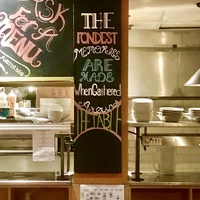 ASK
FOR A
MENU
THE
FONDEST
MEMORIES
ARE
MADE
When Gathered
Around
THE TABLE